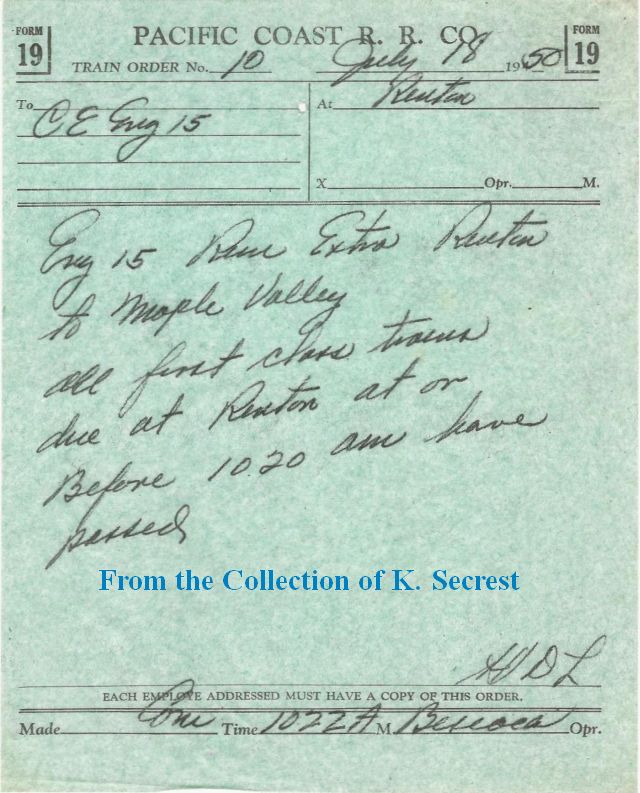 FORM 19
PACIFIC COAST R. R. CO.
FORM 19
TRAIN ORDER No. 10 July 18 1950
To C E Eng 15
At Renton
X Opr. M.
Eng 15 Run Extra Renton
to Maple Valley
all first class trains
due at Renton at or
Before 10 20 am have
passed
From the Collection of K. Secrest
H D L
EACH EMPLOYE ADDRESSED MUST HAVE A COPY OF THIS ORDER.
Made Com Time 1022 A M Opr.